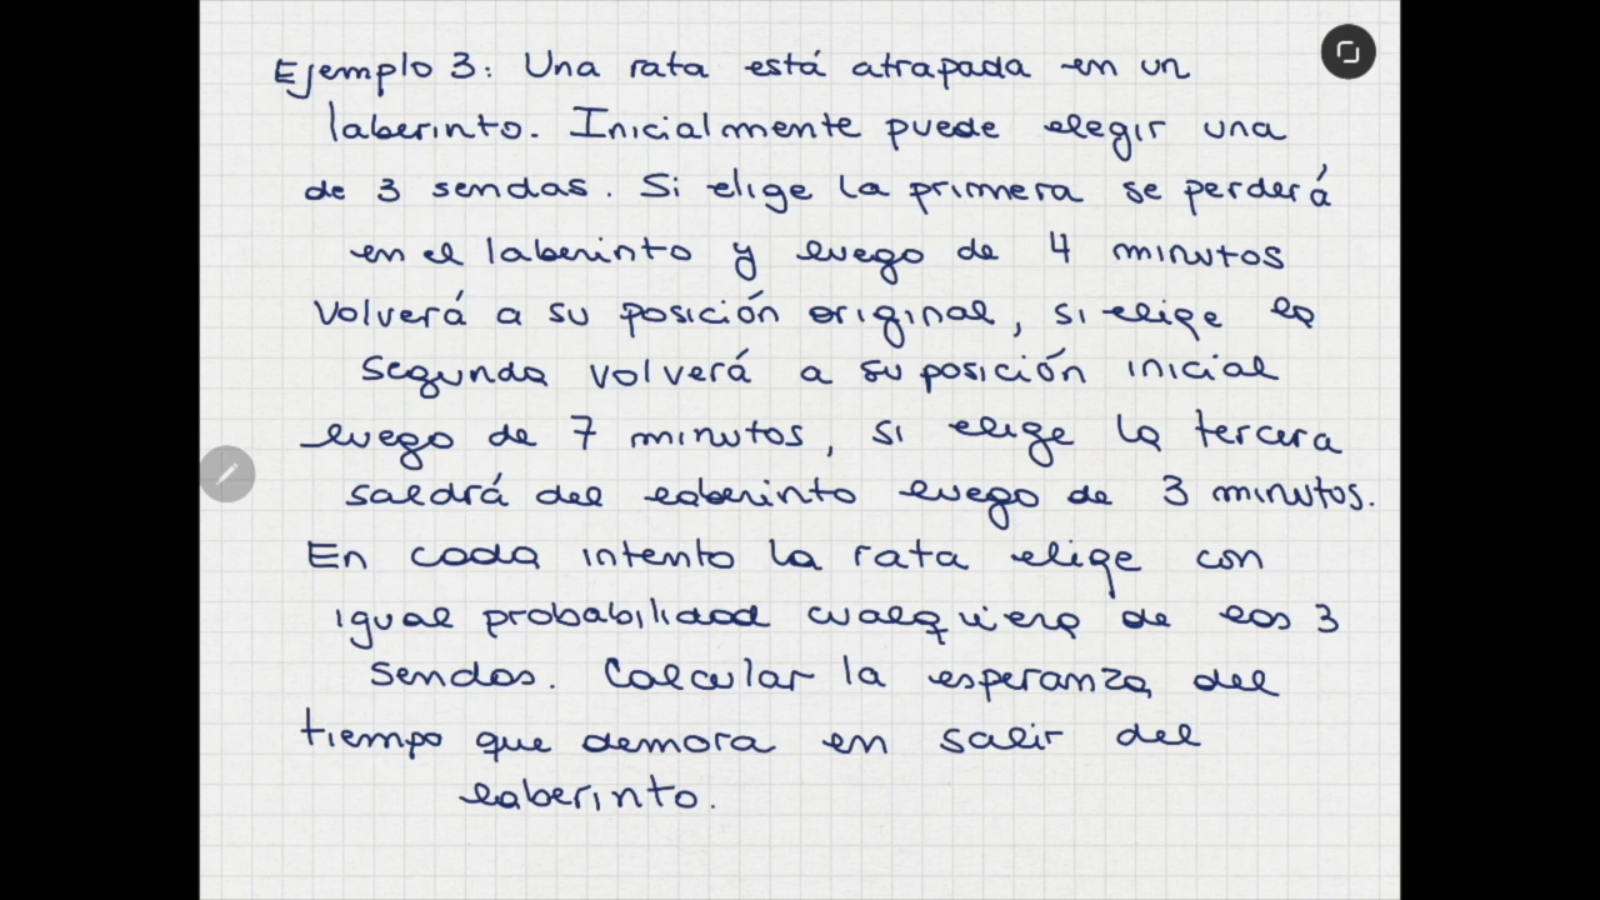 Ejemplo 3: Una rata está atrapada en un
laberinto. Inicialmente puede elegir una
de 3 sendas. Si elige la primera se perderá
en el laberinto y luego de 4 minutos
volverá a su posición original, si elige la
segunda volverá a su posición inicial
luego de 7 minutos, si elige la tercera
saldrá del laberinto luego de 3 minutos.
En cada intento la rata elige con
igual probabilidad cualquiera de las 3
sendas. Calcular la esperanza del
tiempo que demora en salir del
laberinto.